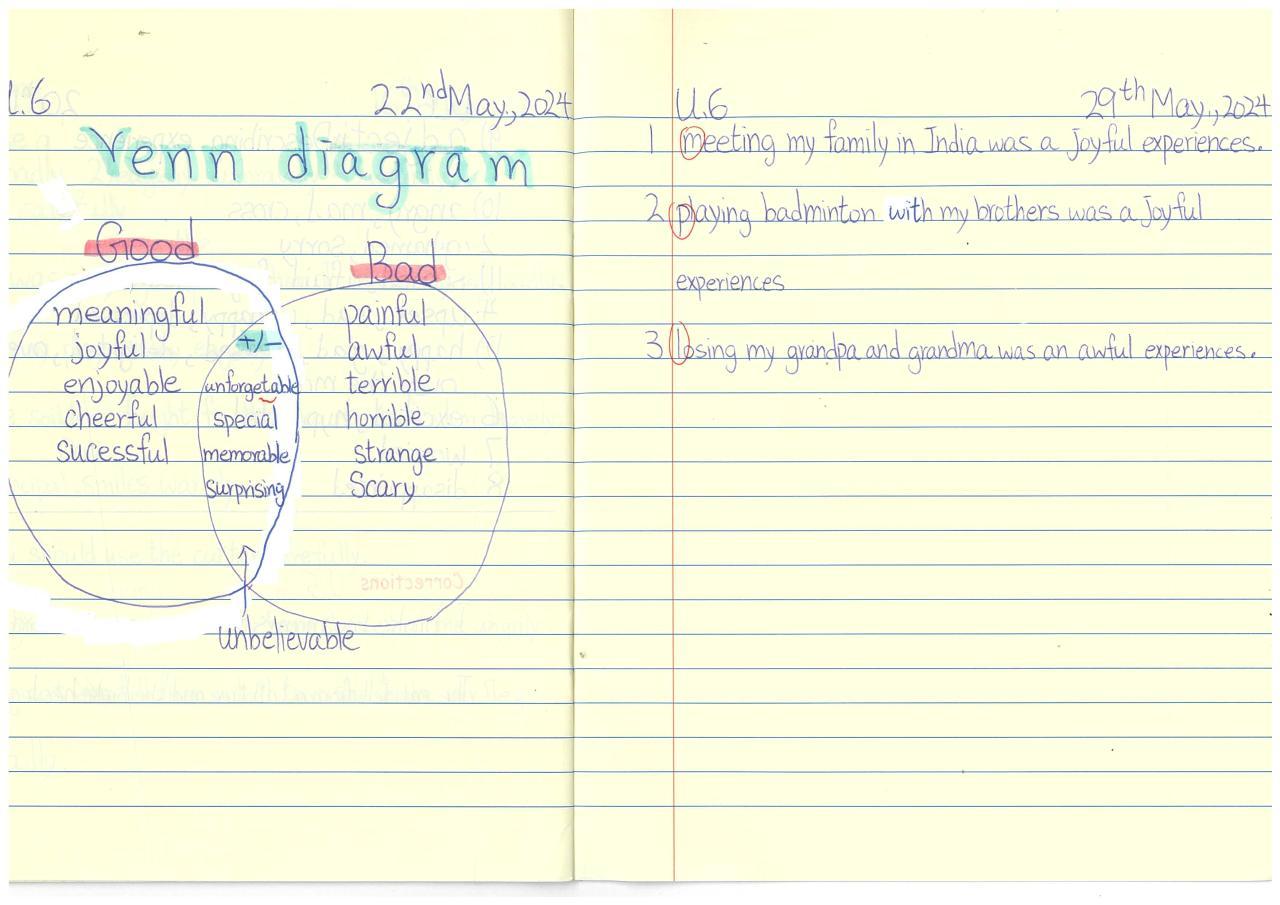 U.6 22nd May, 2024
Venn diagram
Good
Bad
meaningful
joyful
enjoyable
cheerful
sucessful
+/-
unforgetable
special
memorable
surprising
painful
awful
terrible
horrible
strange
Scary
unbelievable
U.6 29th May, 2024
1 meeting my family in India was a joyful experiences.
2 playing badminton with my brothers was a joyful
experiences
3 losing my grandpa and grandma was an awful experiences.
Corrections